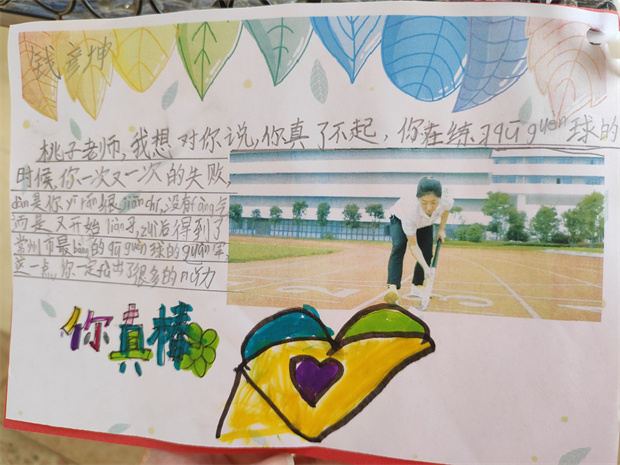 钱彦坤
桃子老师,我想对你说,你真了不起,你在练习qū guen球的
时候,你一次又一次的失败,
dàn是你yī rán很jiān chí,没有fàng弃
而是又开始liàn习,zuì后得到了
常州市最bàng的qū guen球的guàn军,
这一点,你一定付出了很多的nǔ力
你真棒